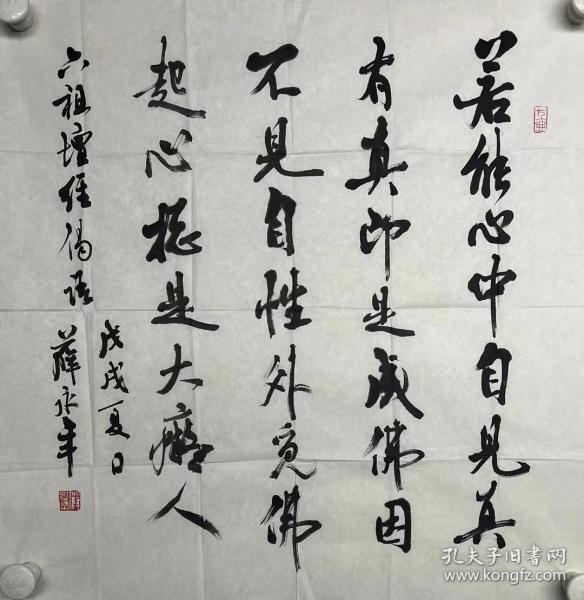 若能心中自见真
有真即是成佛因
不見自性外觅佛
起心揔是大癡人
六祖壇经偈语
戊戌夏日
薛永年
孔夫子旧书网
www.kongfz.com